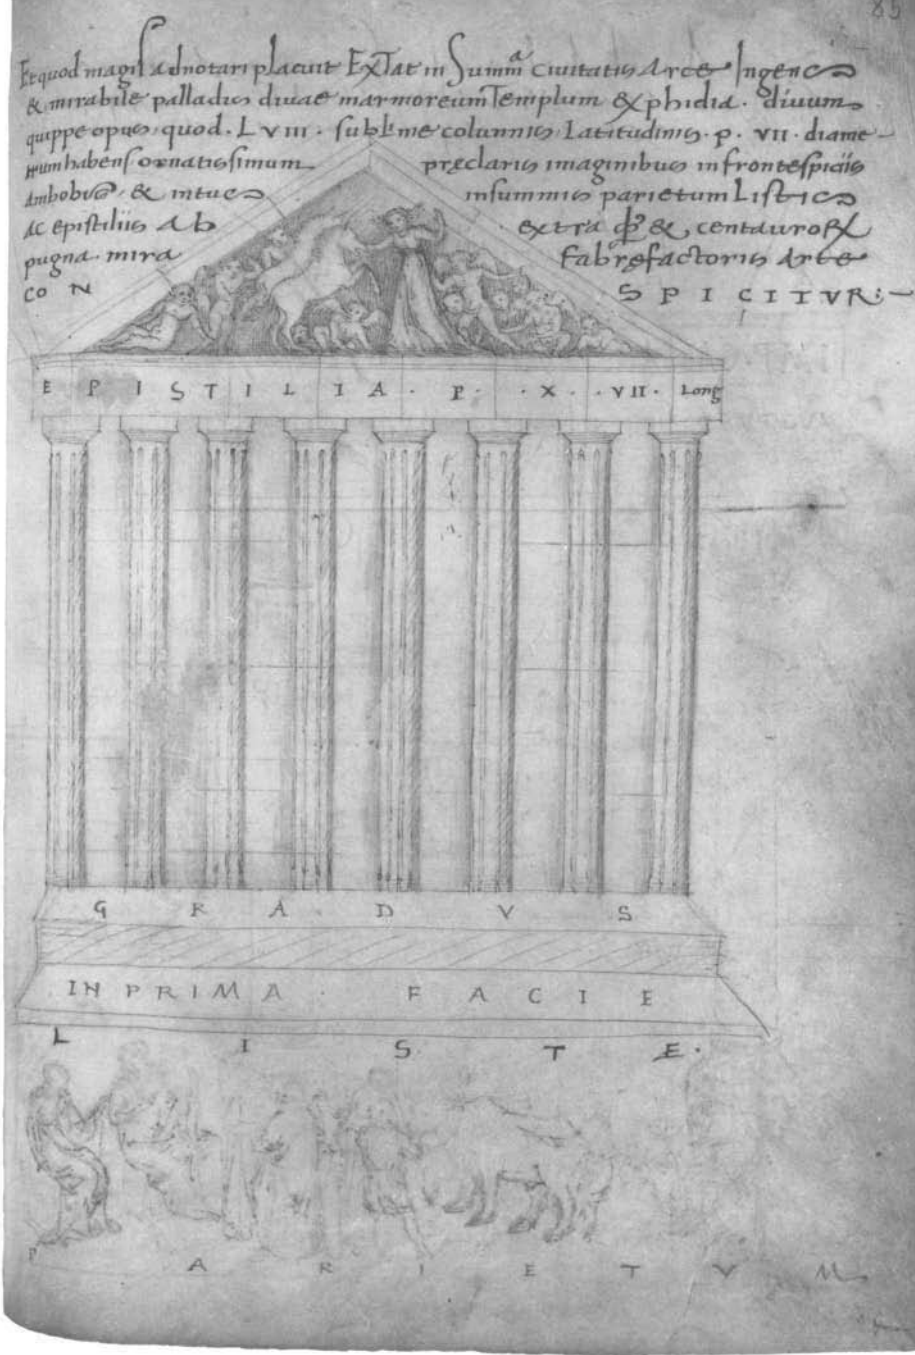 85
Et quod magis adnotari placuit Extat in Summa civitatis Arce Ingens
& mirabile palladis divae marmoreum Templum & phidia. divum
quippe opus, quod. LVIII. sublime columnis, Latitudinis. p. VII. diame-
trum habens ornatissimum praeclaris imaginibus in frontespiciis
Ambobus, & intus in summis parietum Listis
AC epistiliis Ab extra & centaurorum
pugna. mira fabrefactoris Arte
CON SPICITVR:-
EPISTILIA. P. X. VII. Long
GRADVS
IN PRIMA FACIE
LISTE.
PARIETVM